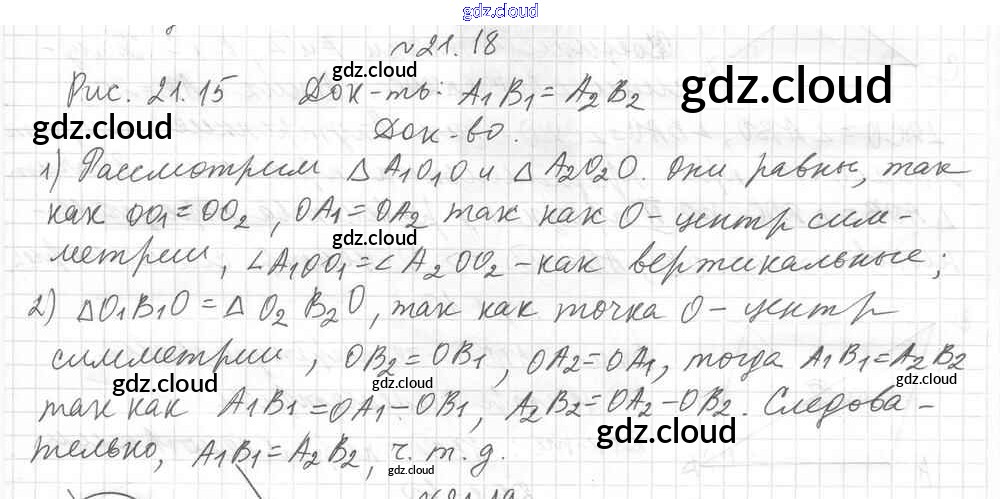 gdz.cloud
gdz.cloud
№21.18
gdz.cloud
Рис. 21.15 Док-ть: A1B1 = A2B2 gdz.cloud
gdz.cloud Док-во.
1) Рассмотрим Δ A1O1O и Δ A2O2O. Они равны, так
gdz.cloud
как OO1 = OO2, OA1 = OA2 так как O - центр сим-
gdz.cloud
метрии, ∠A1OO1 = ∠A2OO2 - как вертикальные;
gdz.cloud
2) ΔO1B1O = Δ O2B2O, так как точка O - центр
симметрии, OB2 = OB1, OA2 = OA1, тогда A1B1 = A2B2
gdz.cloud gdz.cloud gdz.cloud
так как A1B1 = OA1 - OB1, A2B2 = OA2 - OB2. Следова-
gdz.cloud
тельно, A1B1 = A2B2, ч. т. д.
gdz.cloud